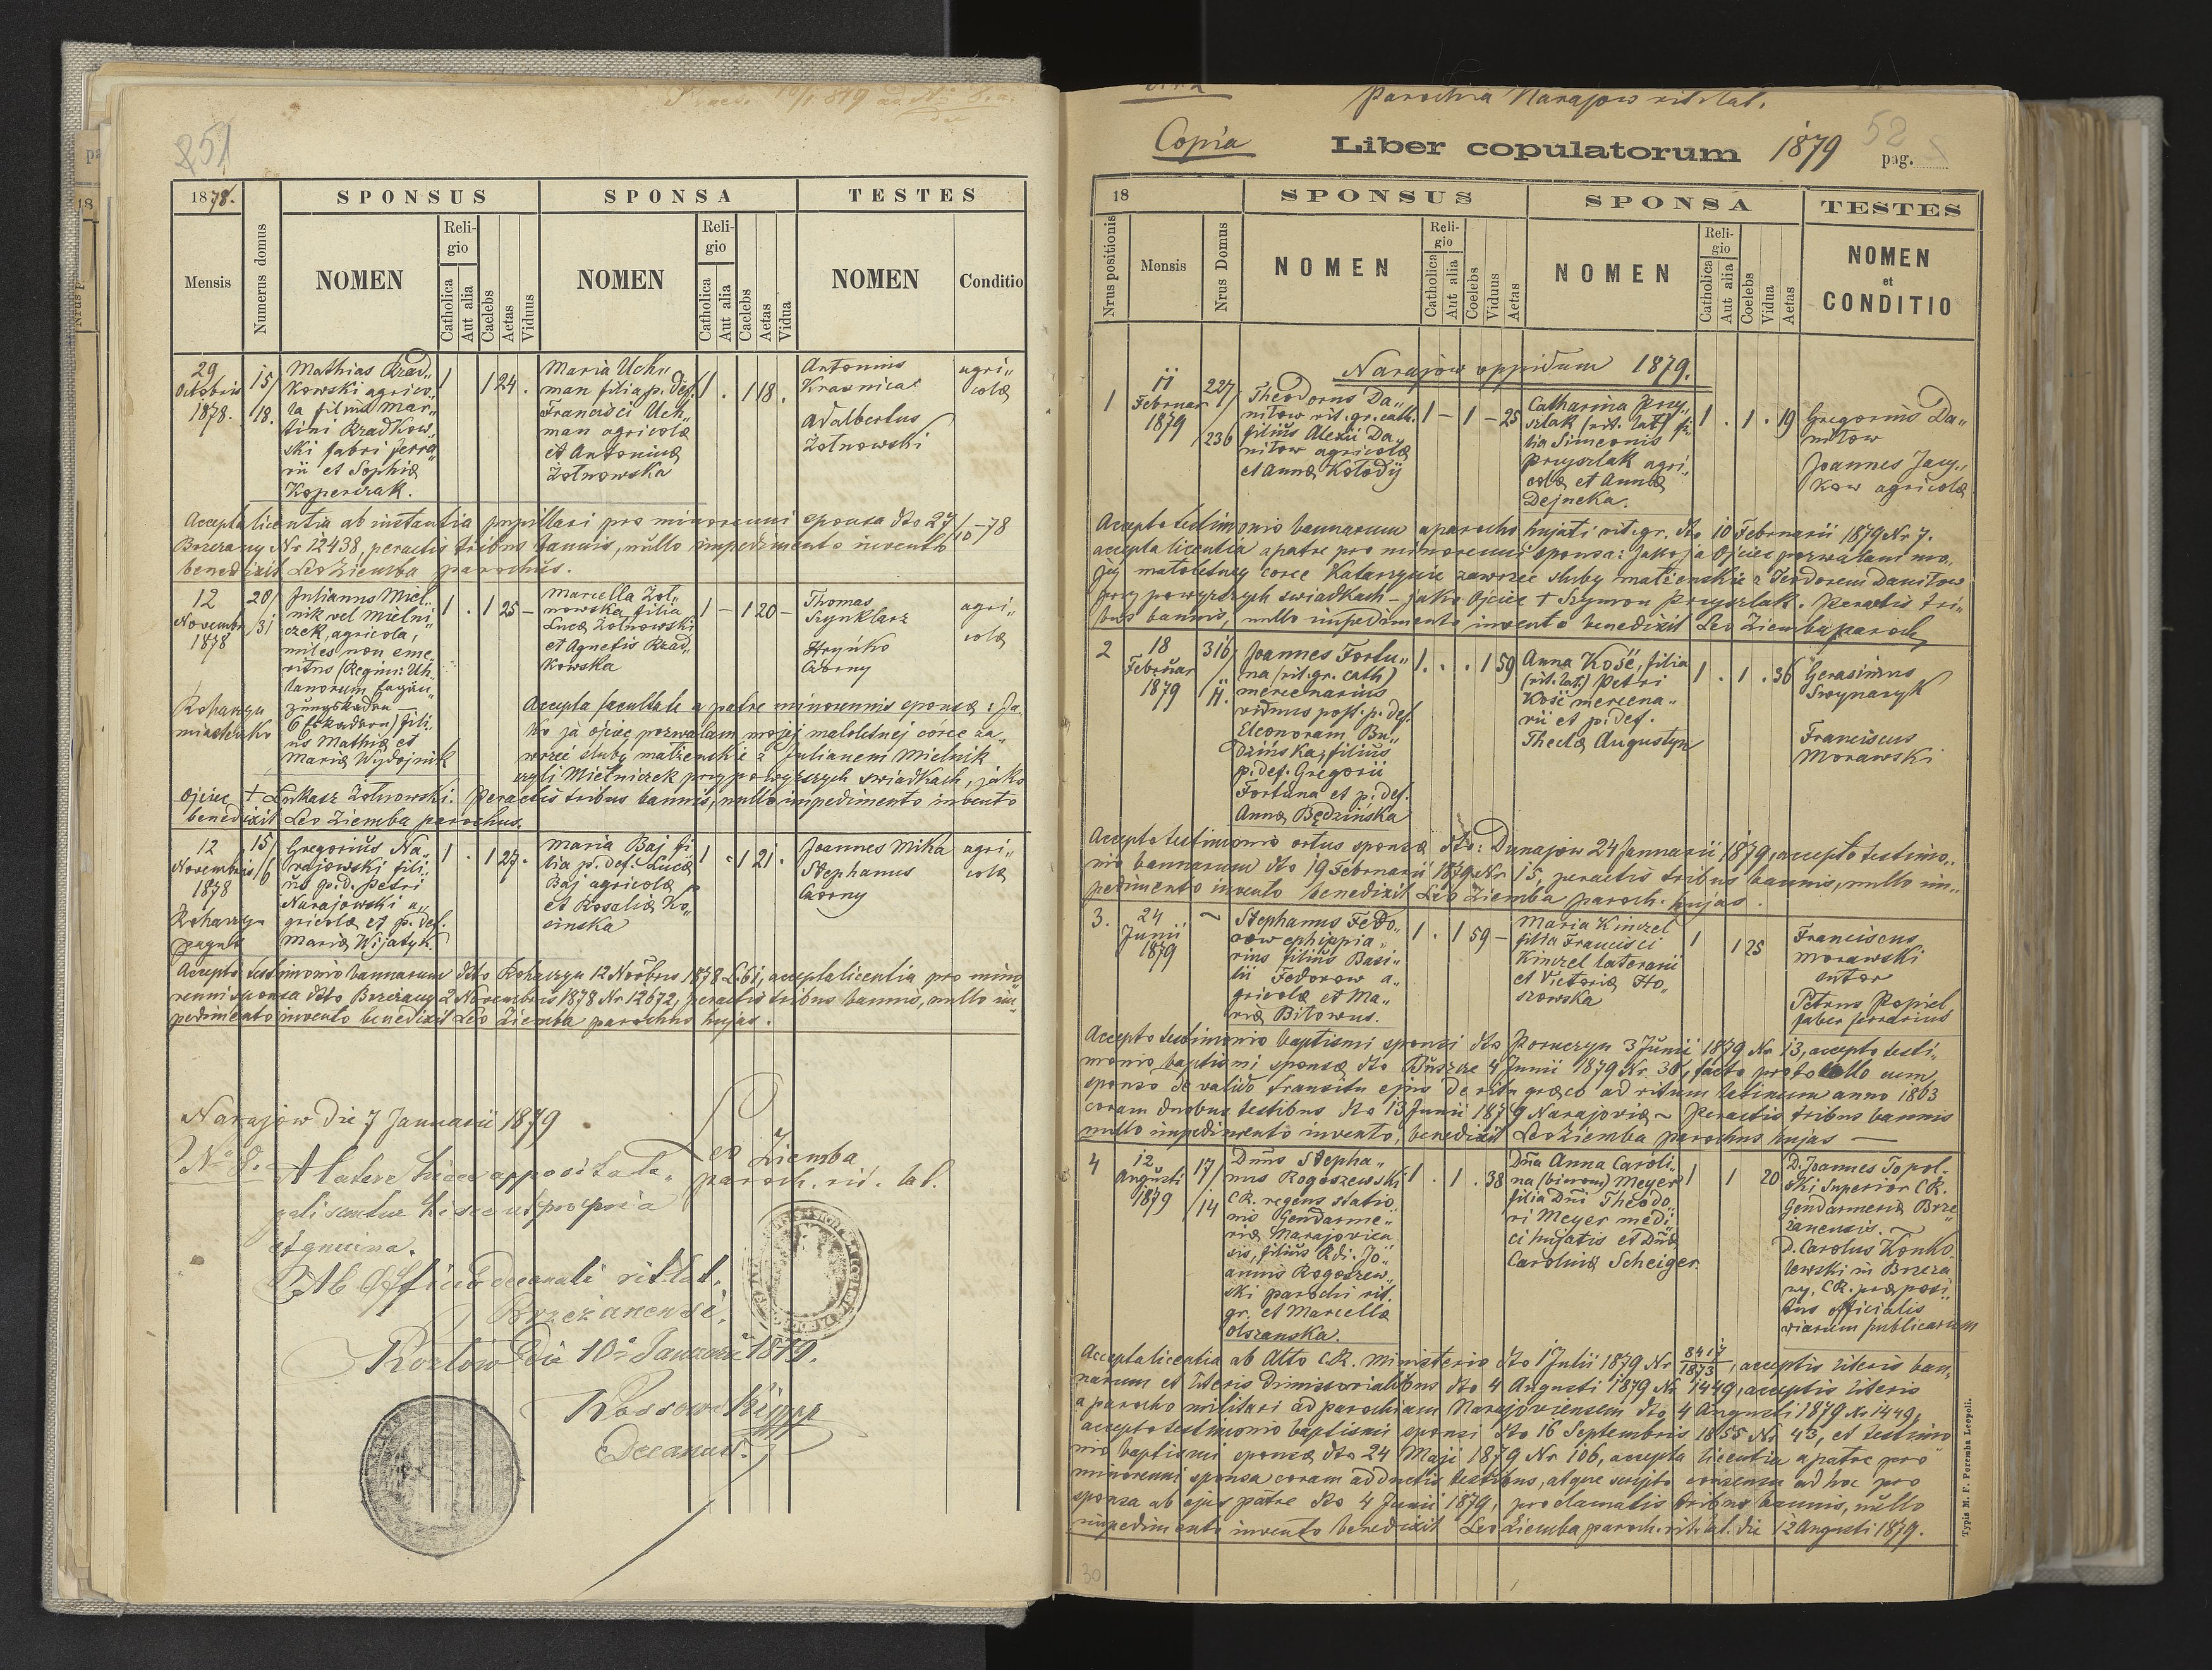 251
1878.
SPONSUS
SPONSA
TESTES
Mensis
Numerus domus
NOMEN
Religio
Catholica
Aut alia
Caelebs
Aetas
Viduus
NOMEN
Religio
Catholica
Aut alia
Caelebs
Aetas
Vidua
NOMEN
Conditio
29
Octobris
1878.
15/
18.
Mathias Rząd„
kowski agrico„
la filius Mar„
tini Rządkow„
ski fabri ferra„
rii et Sophiæ
Koperczak.
1 1 24.
Maria Uch„
man filia p. def.
Francisci Uch„
man agricolæ
et Antoninæ
Żołnowska
1 . 1 18.
Antonius
Krasnicar
Adalbertus
Żołnowski
agri„
colæ
Accepta licentia ab instantia pupillari pro minorenni sponsa dto 27/10 – 78
Brzeżany Nr 12438, peractis tribus bannis, nullo impedimento invento
benedixit Leo Ziemba parochus.
12
Novembr
1878
20/
/31
Julianus Miel„
nik vel Mielni„
czek, agricola,
miles non eme„
ritus (Regim: Uh„
lanorum
6 Eskadron) fili„
us Mathiæ et
Mariæ Wydojnik
1 . 1 25 –
Marcella Żoł„
nowska filia
Lucæ Żołnowski
et Agnetis Rząd„
kowska
1 – 1 20 –
Thomas
Szynklarz
Hryńko
Czorny
agri„
colæ
Rohaczyn
miasteczko
Accepta facultate a patre minorennis sponsæ: Ja„
ko ja ojciec pozwalam mojej małoletnéj córce za„
wrzeć śluby małżeńskie z Julianem Mielnik
czyli Mielniczek przy powyższych swiadkach, jako
ojciec + Łukasz Żołnowski. Peractis tribus bannis, nullo impedimento invento
benedixit Leo Ziemba parochus.
12
Novembris
1878
15/
/6
Gregorius Na„
rajowski fili„
us p.d. Petri
Narajowski a„
gricolæ et p. def.
Mariæ Wijatyk.
1 . 1 27.
Maria Baj fi
lia p. def. Lucæ
Baj agricolæ
et Rosaliæ Ko„
cinska
1 . 1 21.
Joannes Mika
Stephanus
Czorny
agri„
colæ
Rohaczyn
pagus
Accepto testimonio bannarum dto Rohaczyn 12 Nov̄bris 1878 L 61, accepta licentia pro mino„
renni sponsa dto Brzeżany 2 Novembris 1878 Nr. 12672, peractis tribus bannis, nullo im„
pedimento invento benedixit Leo Ziemba parochus hujas.
Narajow die 7 Januarii 1879
Leo Ziemba
paroch. rit. lat.
No 8.
A latere hicce apposita
hicce ut propria
et genuina.
Ab Officio decanali rit. lat.
Brzeżanensi.
Kozłów die 10a Januarii 1879.
Decanus.
Parochia Narajow rit. lat.
Copia
Liber copulatorum 1879
52
pag.
18
SPONSUS
SPONSA
TESTES
Nrus positionis
Mensis
Nrus Domus
NOMEN
Religio
Catholica
Aut alia
Coelebs
Viduus
Aetas
NOMEN
Religio
Catholica
Aut alia
Coelebs
Vidua
Aetas
NOMEN
et
CONDITIO
Narajow oppidum 1879.
1
11
Februar
1879
227/
/236
Theodorus Da„
niłow rit. gr. cath.
filius Alexii Da„
niłow agricolæ
et Annæ Kołodij
1 – 1 – 25
Catharina Przy„
szlak (rit. lat) fi„
lia Simeonis
Przyszlak agri„
colæ et Annæ
Dejneka.
1 . 1 . 19
Gregorius Da„
niłow
Joannes Jacy„
kow agricolæ
Accepto testimonio bannarum a parocho hujati rit. gr. dto 10 Februarii 1879 Nr 7.
accepta licentia a patre pro minorenni sponsa: Jako ja Ojciec pozwalam mo„
jéj małoletniej corce Katarzynie zawrzeć śluby małżenskie z Teodorem Daniłow
przy powyższych swiadkach – jako Ojciec + Szymon Przyszlak. Peractis tri„
bus bannis, nullo impedimento invento benedixit Leo Ziemba paroch
2
18
Februar
1879
316/
11.
Joannes Fortu„
na (rit. gr. cath)
mercenarius
viduus post. p. def.
Eleonoram Bu„
dzińska, filius
p. def. Gregorii
Fortuna et p. def.
Annæ Będzińska
1 . . 1 59
Anna Kość, filia
(rit. lat.) Petri
Kość mercena„
rii et p. def.
Theclæ Augustyn
1 . 1 . 36
Gerasimus
Swynaryk
Franciscus
Morawski
Accepto testimonio ortus sponsæ dto: Dunajow 24 Januarii 1879, accepto testimo„
nio bannarum dto 19 Februarii 1879 Nr 15, peractis tribus bannis, nullo im„
pedimento invento benedixit Leo Ziemba paroch. hujas.
3.
24
Junii
1879
~
Stephanus Fedo„
row ephippia„
rius filius Basi„
lii Fedorow a„
gricolæ et Ma„
riæ Bilowus.
1 . 1 59 –
Maria Kinzel
filia Francisci
Kinzel laterarii
et Victoriæ Ho„
szowska
1 1 25
Franciscus
Morawski
sutor
Petrus Popiel
faber ferrarius
Accepto testimonio baptismi sponsi dto Pomorzyn 3 Junii 1879 Nr 13, accepto testi„
monio baptismi sponsæ dto Buszcze 4 Junii 1879 Nr. 36, facto protocollo cum
sponso de valido transitu ejus de ritu græco ad ritum latinum anno 1863
coram duobus testibus dto 13 Junii 1879 Narajoviæ ~ Peractis tribus bannis
nullo impedimento invento, benedixit Leo Ziemba parochus hujas —
4
12
Augusti
1879
17/
/14
Dnus Stepha„
nus Rogoszewski
CR. regens statio„
nis Gendarme„
riæ Narajovien„
sis, filius Rdi. Jo„
annis Rogoszew„
ski parochi rit.
gr. et Marcellæ
Olszanska.
1 . 1 . 38
Dna Anna Caroli„
na (binom) Meyer
filia Dni Theodo„
ri Meyer medi„
ci hujatis et Dnæ
Carolinæ Scheiger.
1 1 20
D. Joannes Topol„
ski Superior CR.
Gendarmeriæ Brze„
żanensis.
D. Carolus Konko„
lewski in Brzeza„
ny, CR. præposi„
tus officialis
viarum publicarum
Accepta licentia ab Alto CR. Ministerio dto 1 Julii 1879 Nr 8417/1873, acceptis literis ban„
narum et literis dimissorialibus dto 4 Augusti 1879 Nr 1449, acceptis literis
a parocho militari ad parochiam Narajoviensem dto 4 Augusti 1879 Nr 1449,
accepto testimonio baptismi sponsi dto 16 Septembris 1855 Nr 43, et testimo„
nio baptismi sponsæ dto 24 Maji 1879 Nr 106, accepta licentia a patre pro
minorenni sponsa coram adductis testibus, atque scripto consensu ad hoc pro
sponsa ab ejus patre dto 4 Junii 1879, proclamatis tribus bannis, nullo
impedimento invento benedixit Leo Ziemba paroch. rit. lat. die 12 Augusti 1879.
Typis M. F. Poremba Leopoli.
30